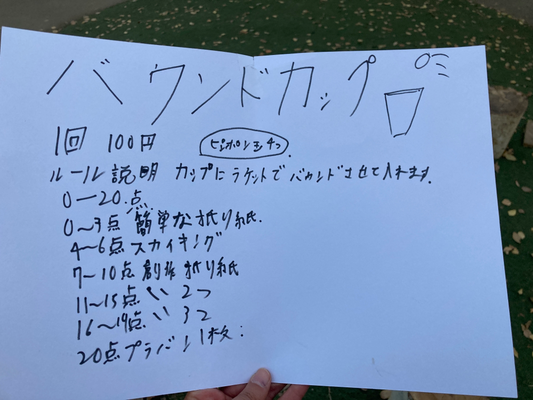 バウンドカップ
1回 100円 ピンポン玉4つ.
ルール説明 カップにラケットでバウンドさせて入れます.
0〜20点
0〜3点 簡単な折り紙.
4〜6点スカイキング
7〜10点 創作折り紙
11〜15点 〃 2つ
16〜19点 〃 3つ
20点プラバン1枚: